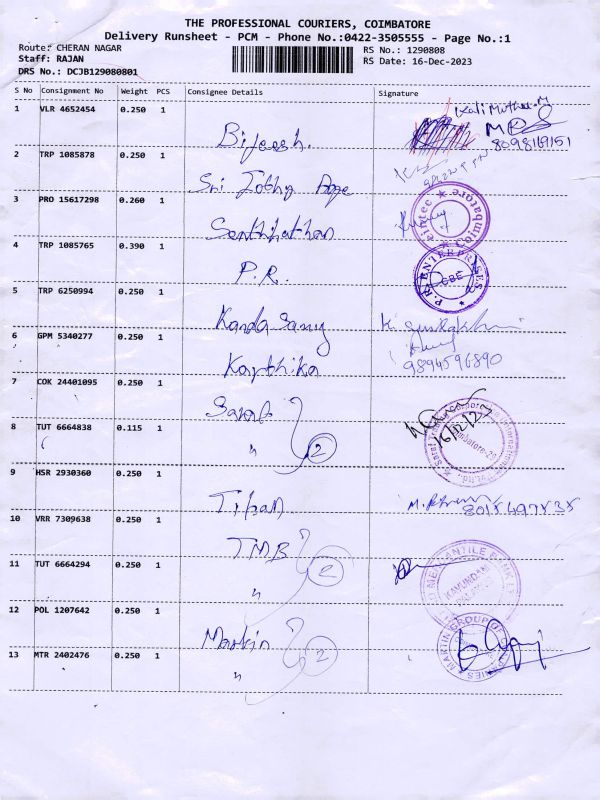 THE PROFESSIONAL COURIERS, COIMBATORE
Delivery Runsheet - PCM - Phone No.:0422-3505555 - Page No.:1
Route: CHERAN NAGAR RS No.: 1290808
Staff: RAJAN RS Date: 16-Dec-2023
DRS No.: DCJB129080801
S No Consignment No Weight PCS Consignee Details Signature
1 VLR 4652454 0.250 1 Bijeesh.
Kali Muthu.M
8098169151
2 TRP 1085878 0.250 1 Sri Jothy
3 PRO 15617298 0.260 1 Senthilnathan
4 TRP 1085765 0.390 1 P.R.
P.R. ENTERPRISES
CBE
5 TRP 6250994 0.250 1 Kanda Samy
6 GPM 5340277 0.250 1 Karthika
9894596890
7 COK 24401095 0.250 1
16/12/23
8 TUT 6664838 0.115 1 " 2
9 HSR 2930360 0.250 1
10 VRR 7309638 0.250 1 TMB
11 TUT 6664294 0.250 1 " 2
KAVUNDAM
12 POL 1207642 0.250 1 Martin
MARTIN GROUP OF
13 MTR 2402476 0.250 1 " 2